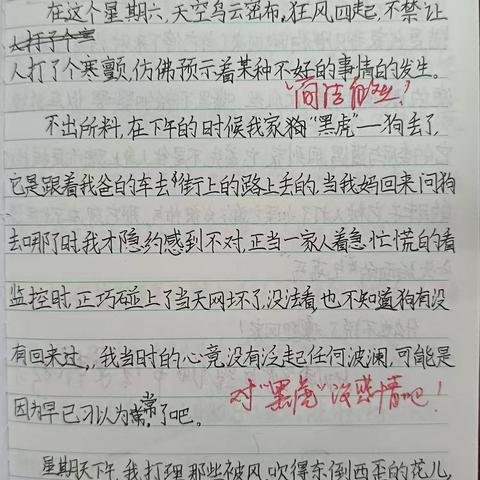 在这个星期六,天空乌云密布,狂风四起,不禁让
人打了个寒颤,仿佛预示着某种不好的事情的发生。
简洁自然!
不出所料,在下午的时候我家狗“黑虎”一狗丢了,
它是跟着我爸的车去街上的路上丢的,当我妈回来问狗
去哪了时我才隐约感到不对,正当一家人着急忙慌的看
监控时,正巧碰上了当天网坏了,没法看,也不知道狗有没
有回来过,,我当时的心竟没有泛起任何波澜,可能是
对“黑虎”没感情吧!
因为早已习以为常了吧。
星期天下午,我打理那些被风吹得东倒西歪的花儿,